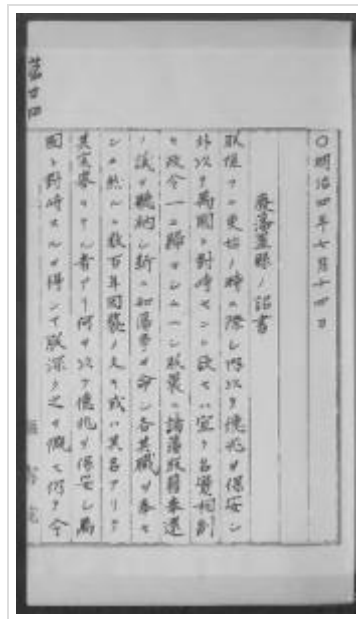 〇明治四年七月十四日
廃藩置縣ノ詔書
朕惟フニ更始ノ時ニ際シ内以テ億兆ヲ保安シ
外以テ萬國ト對峙セント欲セハ宜ク名實相副
ヒ政令一ニ歸セシムヘシ朕曩ニ諸藩版籍奉還
ノ議ヲ聴納シ新ニ知藩事ヲ命シ各其職ヲ奉セ
シム然ルニ数百年因襲ノ久キ或ハ其名アリテ
其實擧ラサル者アリ何ヲ以テ億兆ヲ保安シ萬
國ト對峙スルヲ得ンヤ朕深ク之ヲ慨ス仍テ今